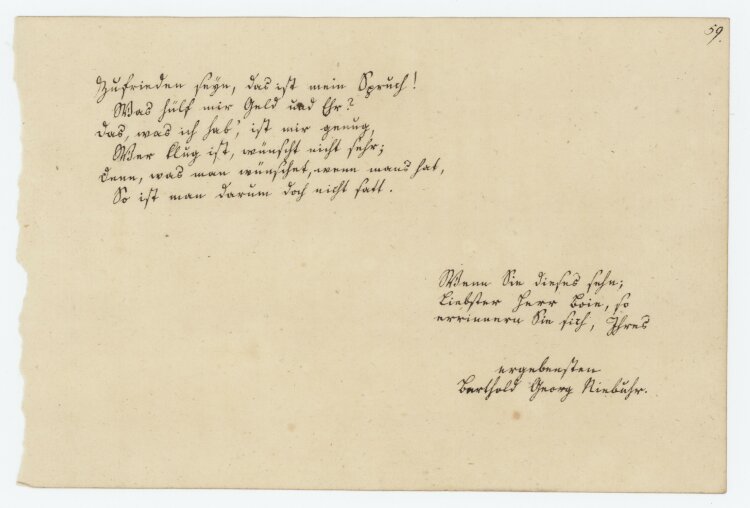 59.
Zufrieden seyn, das ist mein Spruch!
Was hülf mir Geld und Ehr?
Das, was ich hab', ist mir genug,
Wer klug ist, wünscht nicht sehr;
Denn, was man wünschet, wenn mans hat,
So ist man darum doch nicht satt.
Wenn Sie dieses sehn;
Liebster Herr Boie, so
errinnern Sie sich, Ihres
ergebensten
Barthold Georg Niebuhr.